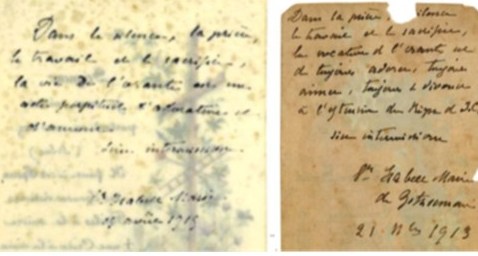 Dans le silence, la prière,
le travail et le sacrifice,
la vie de l'orante est un
acte perpétuel d'adoration et
d'amour.
Sine intermissione
Isabelle Marie
août 1915
Dans la prière, silence
le travail et le sacrifice,
la vocation de l'orante est
de toujours adorer, toujours
aimer, toujours se dévouer
à l'extension du Règne de
sine intermissione
Isabelle Marie
de Gethsémani
21 1913